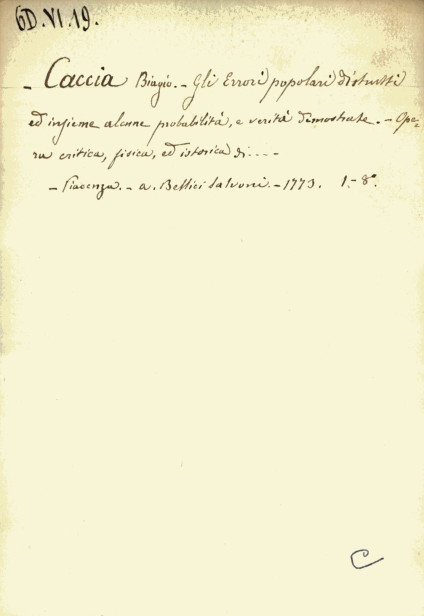 6D.VI.19.
- Caccia Biagio. - Gli Errori popolari distrutti
ed insieme alcune probabilità, e verità dimostrate. - Ope=
ra critica, fisica, ed istorica di ....
- Piacenza. - a. Bellici Salvoni. - 1773. 1.- 8°.
C